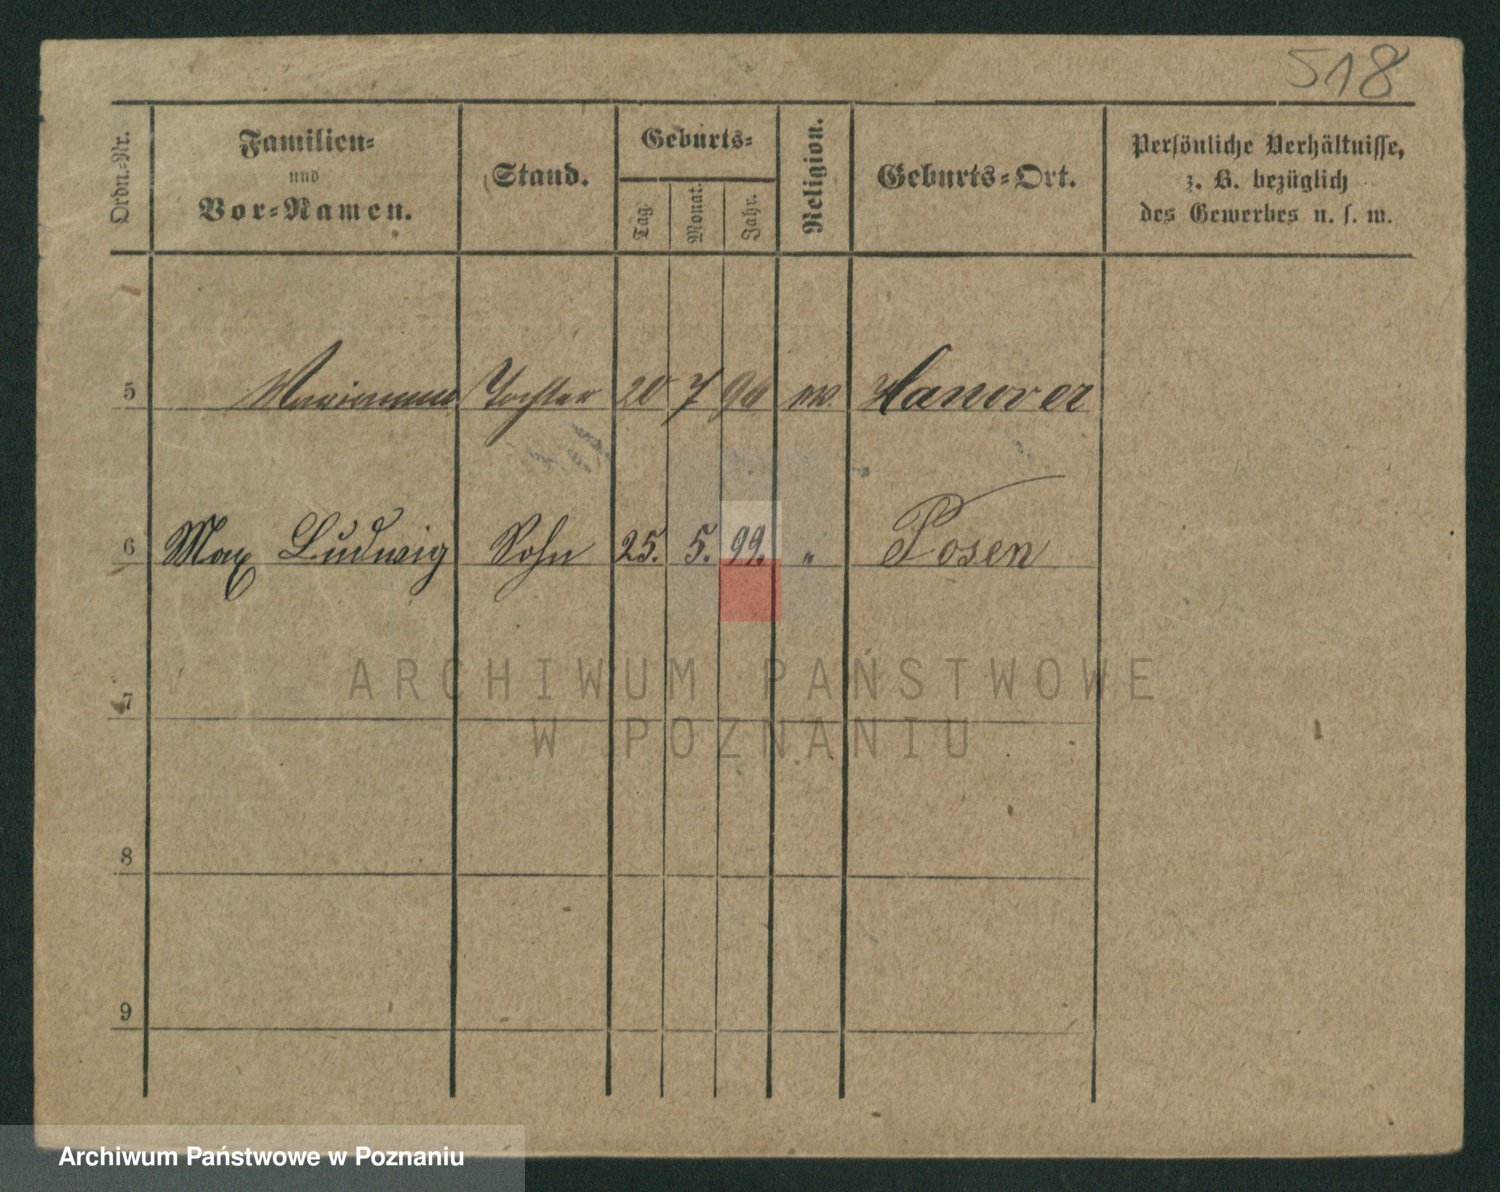 518
Ordn.-Nr.
Familien-
und
Vor-Namen.
Stand.
Geburts-
Tag.
Monat.
Jahr.
Religion.
Geburts-Ort.
Persönliche Verhältnisse,
z. B. bezüglich
des Gewerbes u. s. w.
5 Tochter 20 7 Hanover
6 Max Ludwig Sohn 25. 5. 99. " Posen
7
8
9
ARCHIWUM PAŃSTWOWE
W POZNANIU
Archiwum Państwowe w Poznaniu